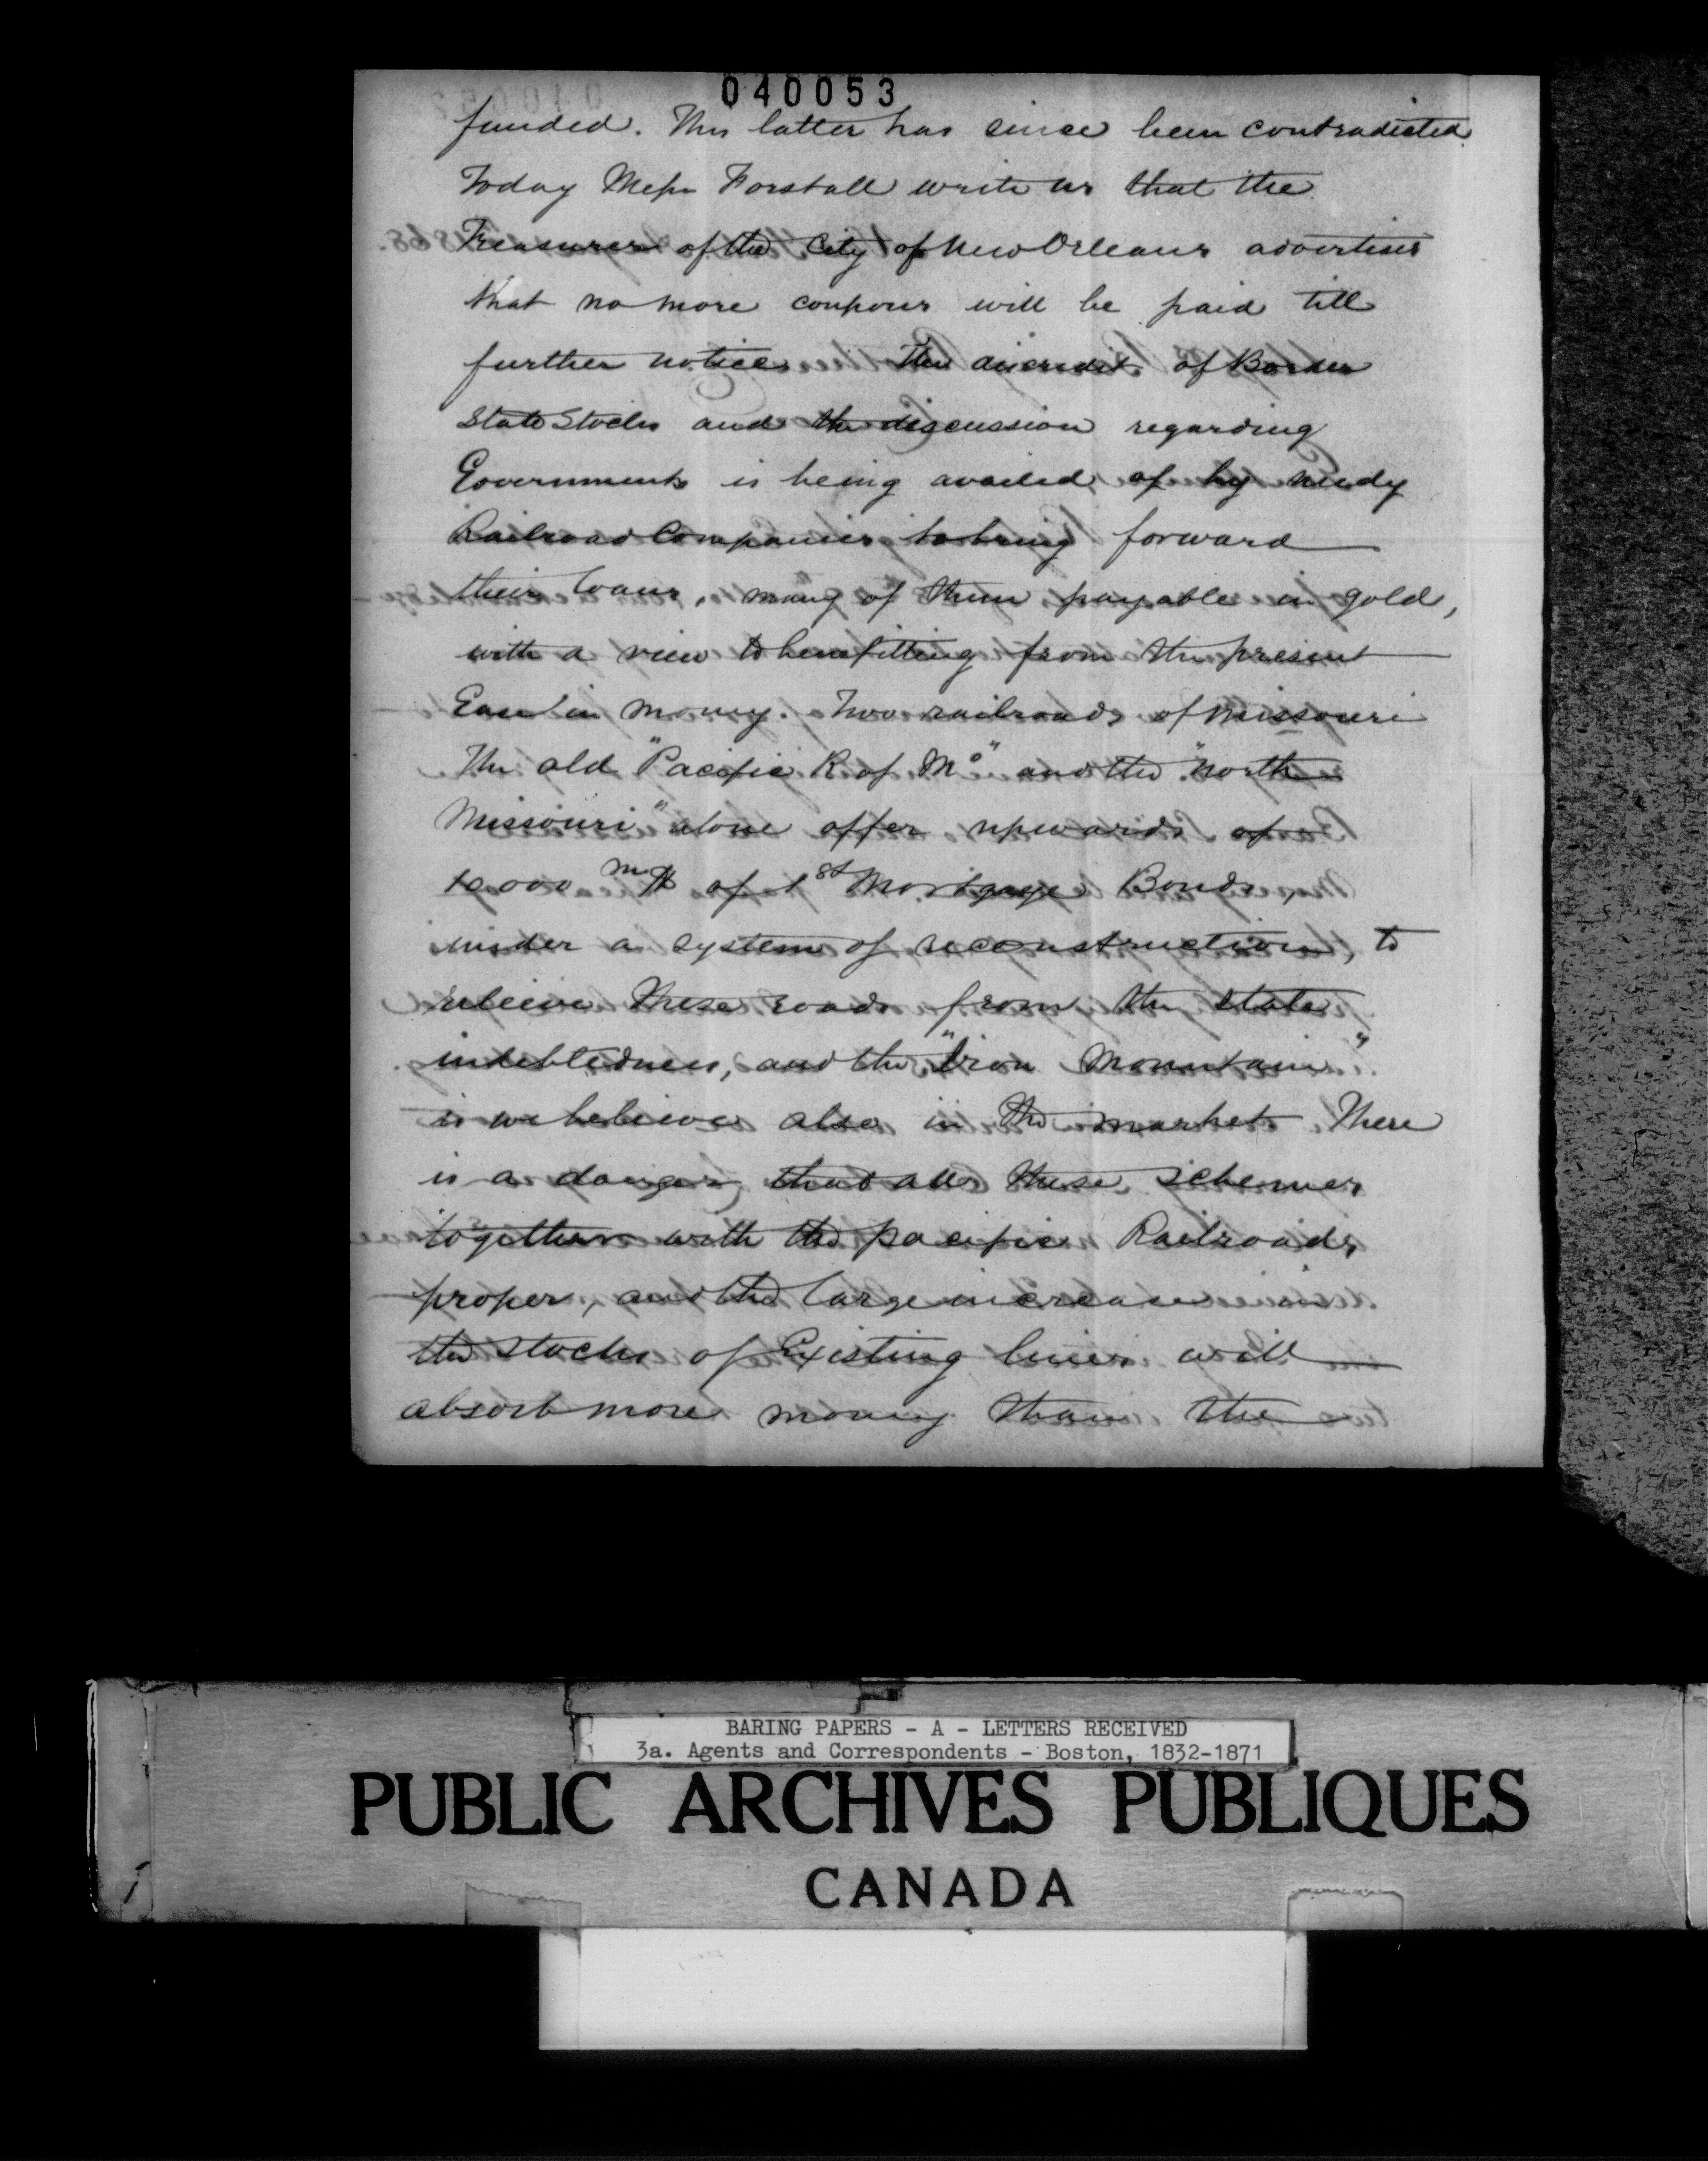 040053
funded. This latter has since been contradicted.
Today Messrs Forstall write us that the
Treasurer of the City of New Orleans advertises
that no more coupons will be paid till
further notice. The discredit of Border
State Stocks and the discussion regarding
Governments is being availed of by needy
Railroad Companies to bring forward
their loans, many of them payable in gold,
with a view to benefitting from the present
Ease in money. Two railroads of Missouri
The old "Pacific R of Mo" and the "North
Missouri" alone offer upwards of
10.000 m$ of 1st Mortgage Bonds,
under a system of reconstruction, to
relieve these roads from the state
indebtedness, and the "Iron Mountain"
is we believe also in the market. There
is a danger that all these schemes
together with the pacific Railroads
proper, and the large increase in
the stocks of Existing lines will
absorb more money than the
BARING PAPERS - A - LETTERS RECEIVED
3a. Agents and Correspondents - Boston, 1832-1871
PUBLIC ARCHIVES PUBLIQUES
CANADA